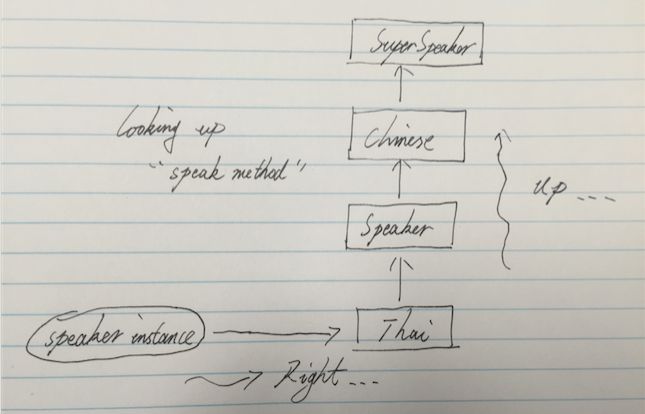 SuperSpeaker
Looking up
"speak method"
Chinese
up ...
Speaker
speaker instance
Thai
Right ...